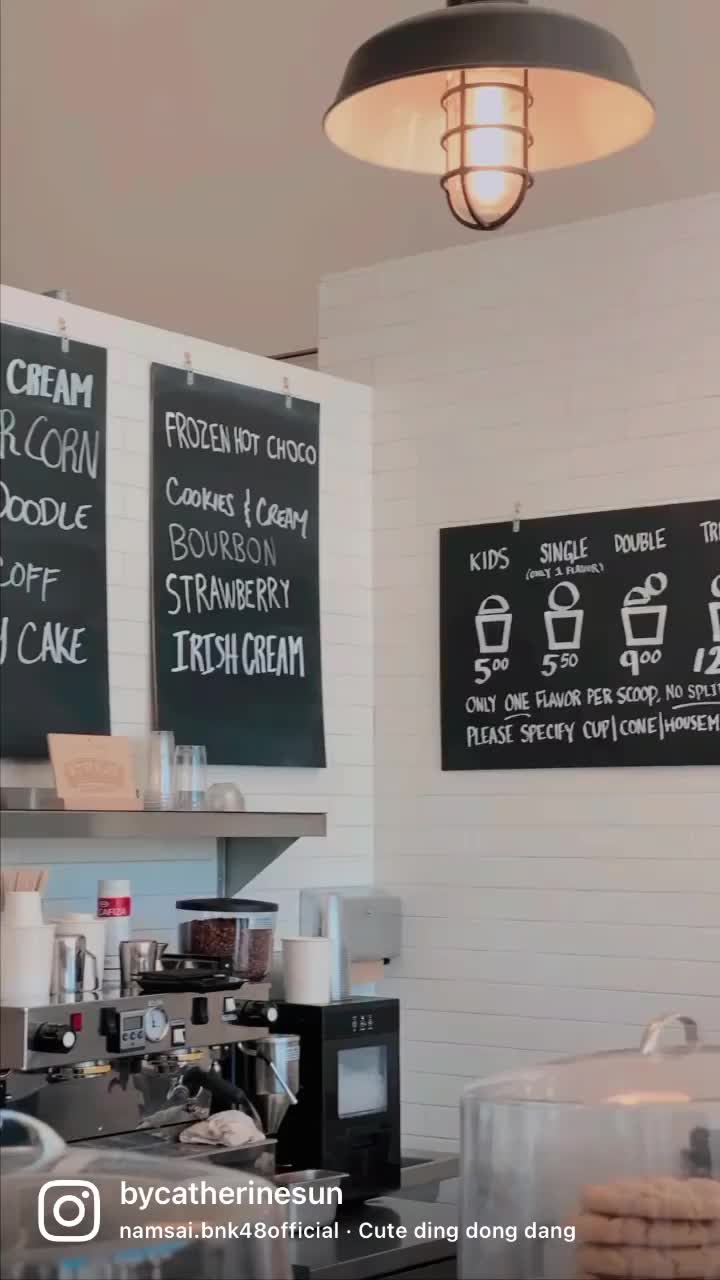 CREAM
R CORN
DOODLE
COFF
CAKE
FROZEN HOT CHOCO
COOKIES & CREAM
BOURBON
STRAWBERRY
IRISH CREAM
KIDS SINGLE DOUBLE TR
(ONLY 1 FLAVOR)
5.00 5.50 9.00 12
ONLY ONE FLAVOR PER SCOOP, NO SPLIT
PLEASE SPECIFY CUP|CONE|HOUSEM
CAFIZA
bycatherinesun
namsai.bnk48official · Cute ding dong dang